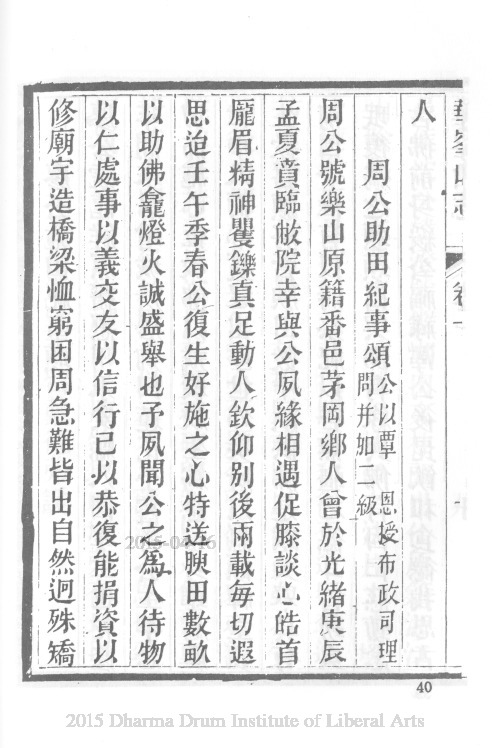 人
周公助田紀事頌公以覃 恩授布政司理問并加二級
周公號樂山原籍番邑茅岡鄉人曾於光緒庚辰
孟夏賁臨敝院幸與公夙緣相遇促膝談心皓首
龐眉精神矍鑠真足動人欽仰別後兩載每切遐
思迨壬午季春公復生好施之心特送腴田數畝
以助佛龕燈火誠盛舉也予夙聞公之為人待物
以仁處事以義交友以信行已以恭復能捐資以
修廟宇造橋梁恤窮困周急難皆出自然迥殊矯
40
2015-04-16
2015 Dharma Drum Institute of Liberal Arts